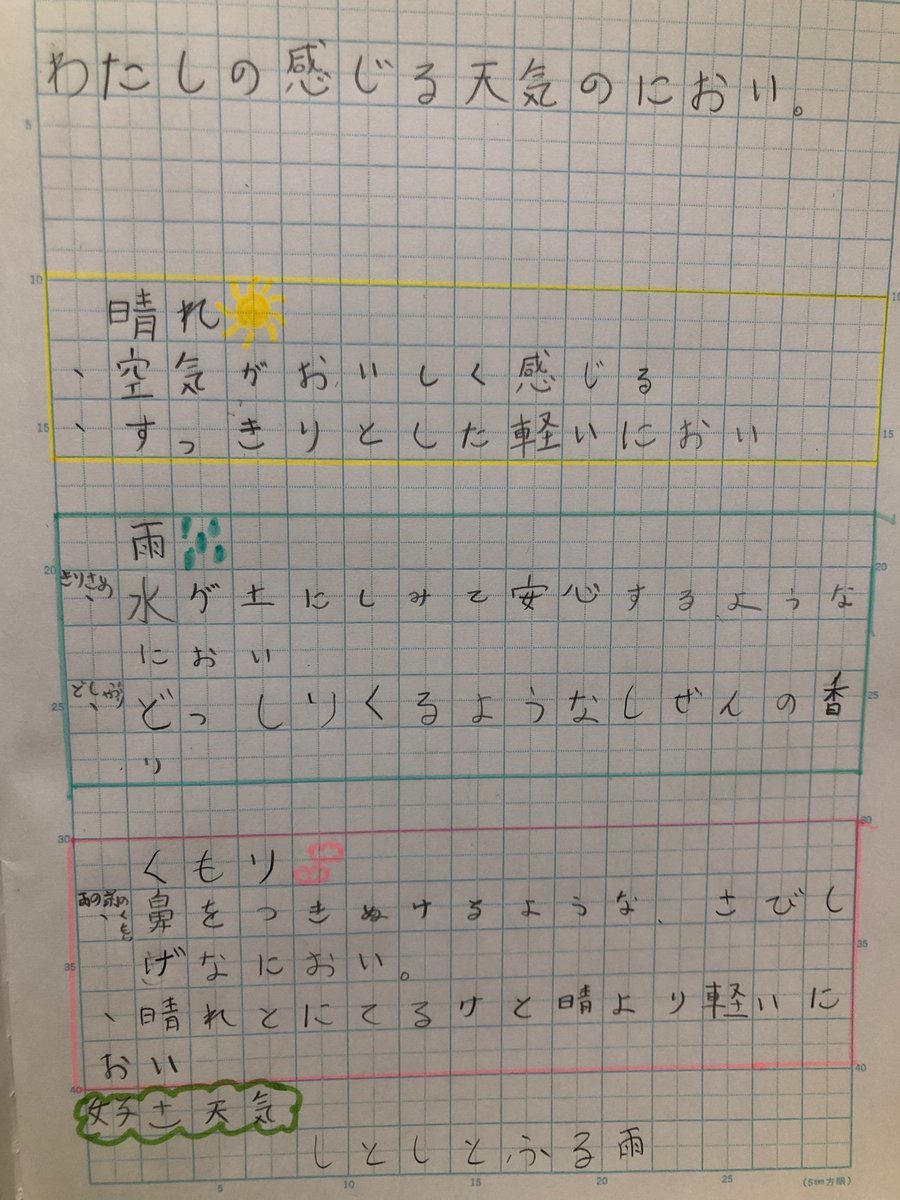 わたしの感じる天気のにおい。
晴れ
、空気がおいしく感じる
、すっきりとした軽いにおい
雨
きりさめ、水が土にしみて安心するような
におい
どしゃぶり、どっしりくるようなしぜんの香
り
くもり
雨の前のくもり、鼻をつきぬけるような、さびし
げなにおい。
、晴れとにてるけと晴より軽いに
おい
好きな天気
しとしとふる雨
5
10
15
20
25
30
35
40
10
15
20
25
30
35
40
5
10
15
20
25
(5mm方眼)